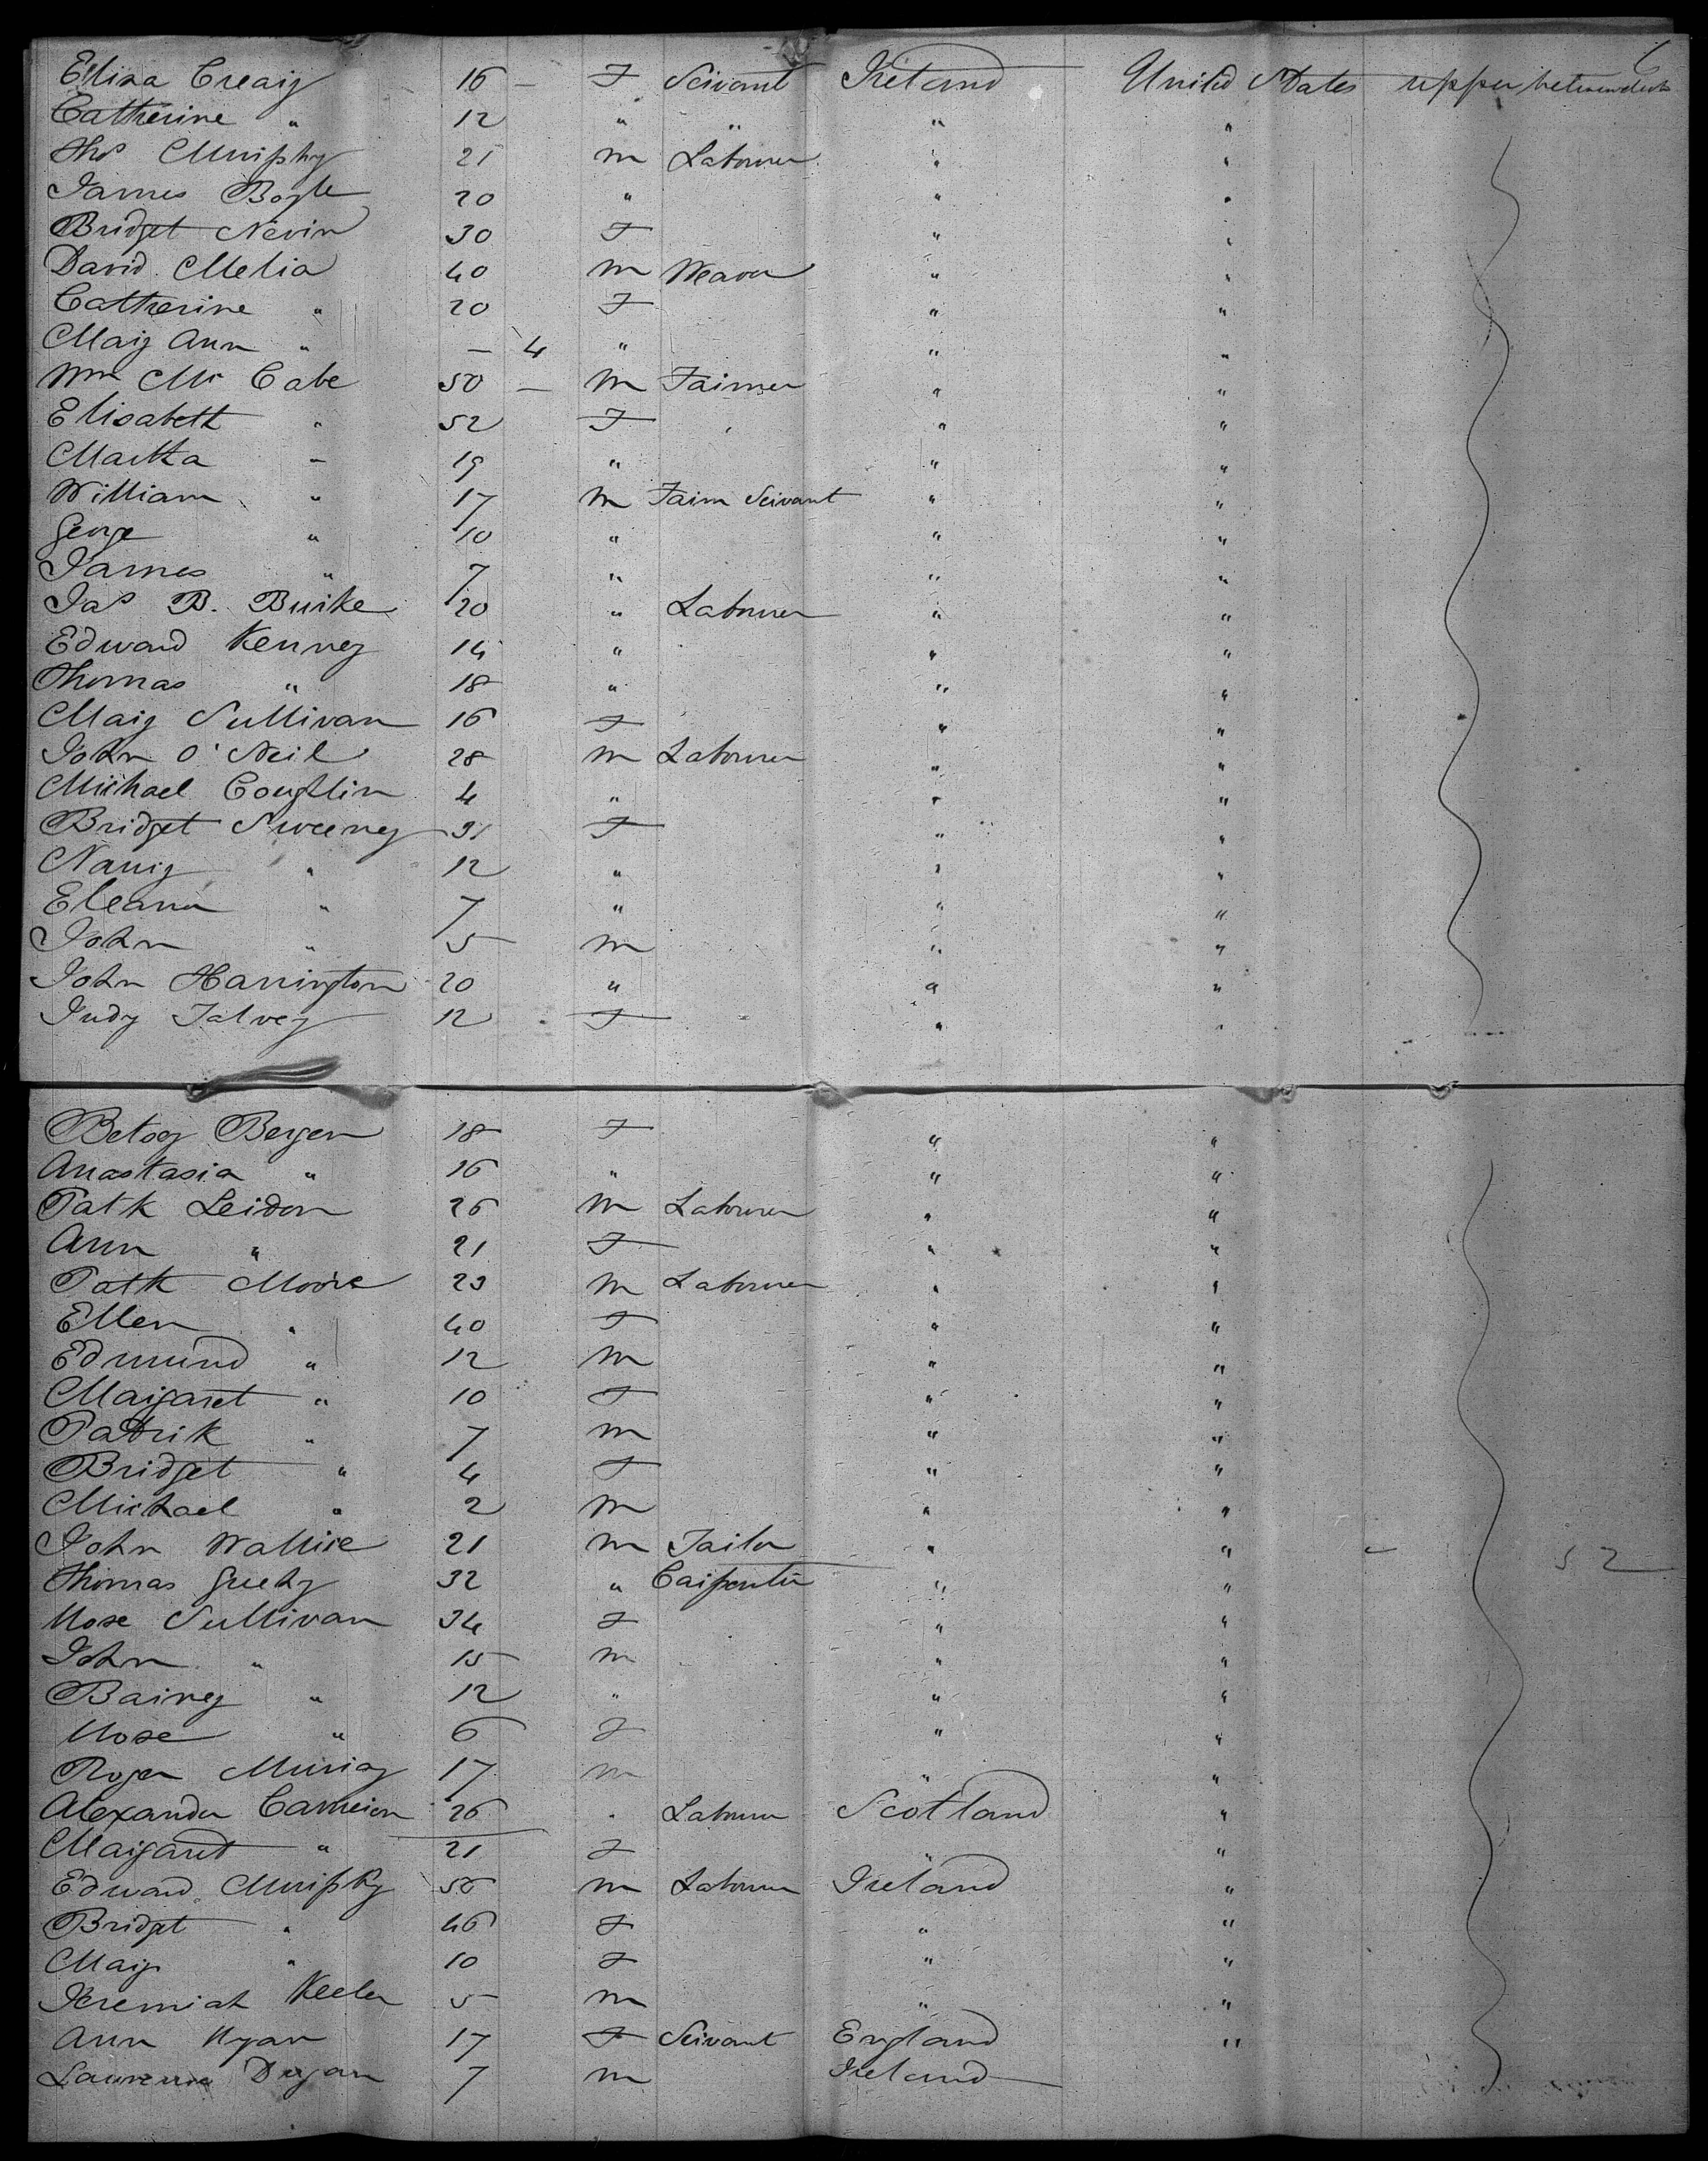 6
Eliza Creary 16 — F Servant Ireland United States upper between decks
Catherine " 12 " " " "
Thos Murphy 21 m Labourer " "
James Boyle 20 " " "
Bridget Nevin 30 F " "
David Melia 40 m Weaver " "
Catherine " 20 F " "
Mary Ann " — 4 " " "
Wm Mc Cabe 50 — m Farmer " "
Elisabeth " 52 F " "
Martha " 19 " " "
William " 17 m Farm Servant " "
George " 10 " " "
James " 7 " " "
Jas B. Burke 20 " Labourer " "
Edward Kenney 14 " " "
Thomas " 18 " " "
Mary Sullivan 16 F " "
John O'Neil 28 m Labourer " "
Michael Coughlin 4 " " "
Bridget Sweeney 31 F " "
Nancy " 12 " " "
Eleanor " 7 " " "
John " 5 m " "
John Harrington 20 " " "
Judy Falvey 12 F " "
Betsey Bergen 18 F " "
Anastasia " 16 " " "
Patk Leidon 26 m Labourer " "
Ann " 21 F " "
Patk Moore 23 m Labourer " "
Ellen " 40 F " "
Edmund " 12 m " "
Margaret " 10 F " "
Patrik " 7 m " "
Bridget " 4 F " "
Michael " 2 m " "
John Wallice 21 m Tailor " " 52
Thomas 32 " Carpenter " "
Rose Sullivan 34 F " "
John " 15 m " "
Barney " 12 " " "
Rose " 6 F " "
Roger Murray 17 m " "
Alexander Cameron 26 " Labourer Scotland "
Margaret " 21 F " "
Edward Murphy 50 m Labourer Ireland "
Bridget " 46 F " "
Mary " 10 F " "
Jeremiah Keeler 5 m " "
Ann Ryan 17 F Servant England "
Laurence Dugan 7 m Ireland